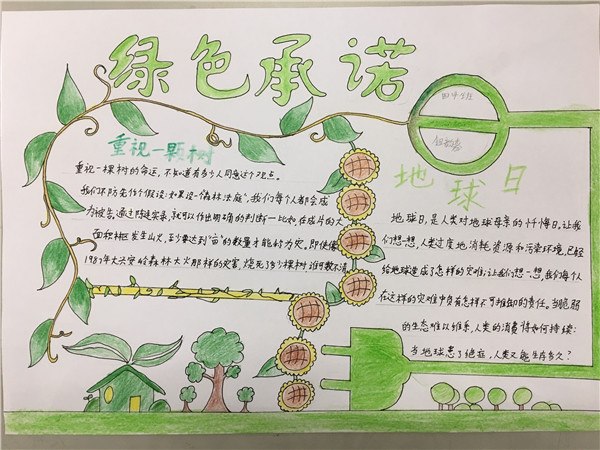 绿色承诺
重视一颗树
重视一棵树的命运,不知道有多少人同意这个观点。
我们不防先作个假设:如果设一"森林法庭",我们每个人都会成
为被告,通过陈述实录,就可以作出明确的判断一比如,在成片的大
面积林区发生山火,至少要达到"亩"的数量才能称为灾,即使像
1987年大兴安岭森林大火那样的灾害,烧死了多少棵树,谁可数不清。
地球日
地球日,是人类对地球母亲的忏悔日,让我
们想一想,人类过度地消耗资源和污染环境,已经
给地球造成了怎样的灾难;让我们想一想,我们每个人
在这样的灾难中负有怎样不可推卸的责任。当脆弱
的生态难以维系,人类的消费得如何持续;
当地球患了绝症,人类又能生存多久?